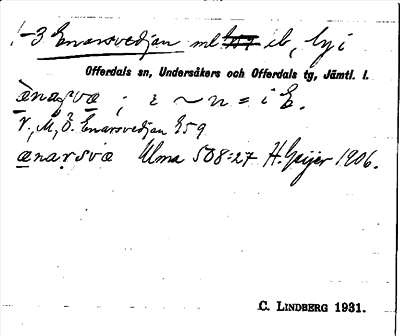 1-3 Enarsvedjan ml ib, by i
Offerdals sn, Undersåkers och Offerdals tg, Jämtl. l.
ænaṣvæ ; i ~ n = i E.
V., M., Ö. Enarsvedjan 259
ænarsvæ Ulma 508:27 H. Geijer 1906.
C. LINDBERG 1931.